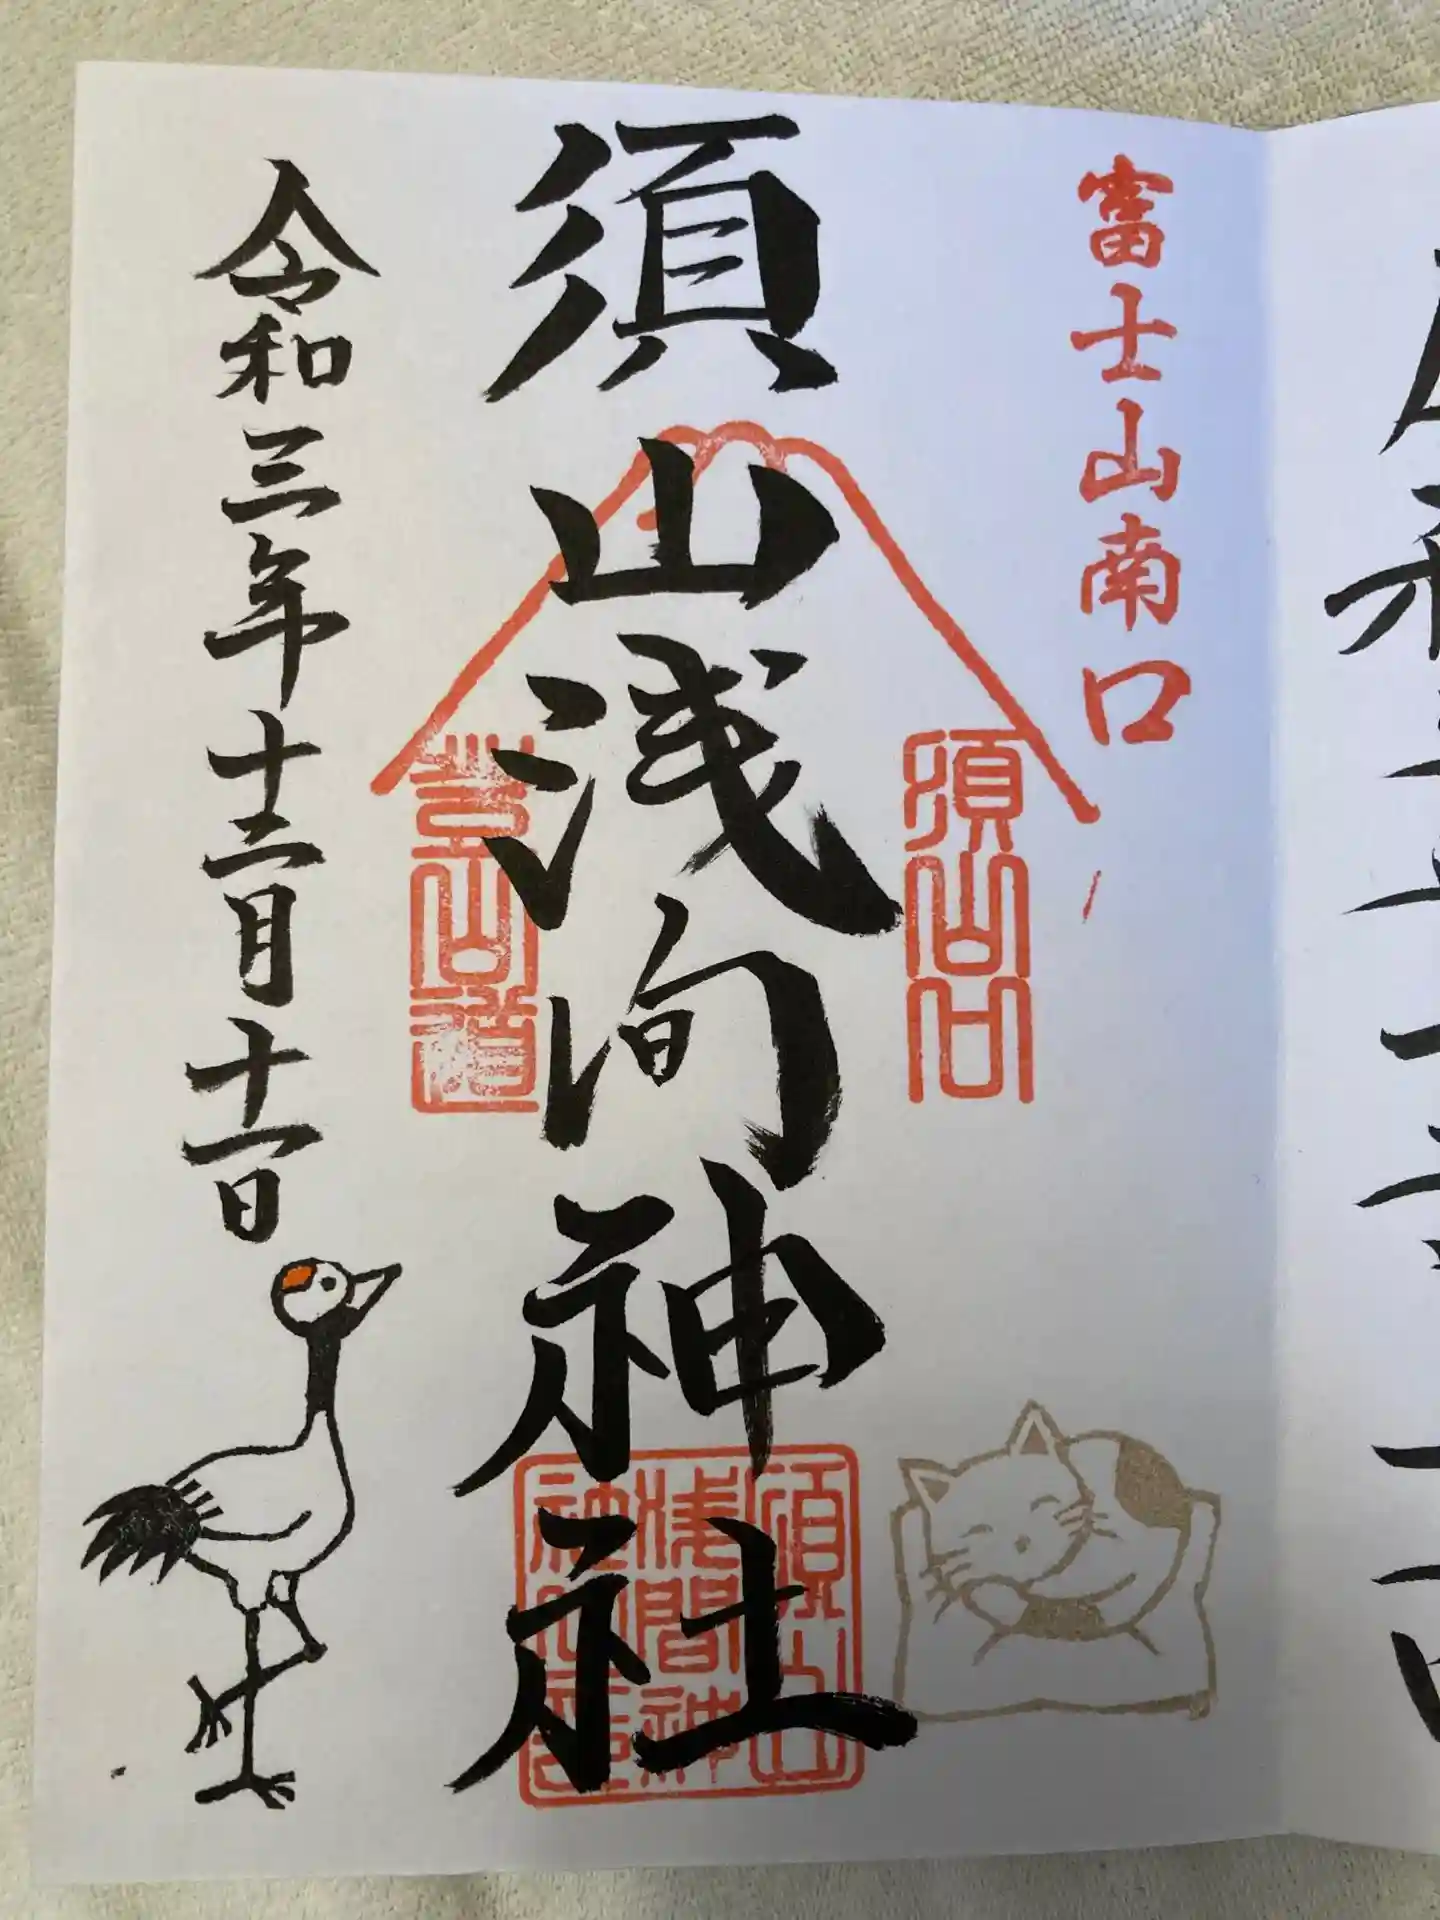 富士山南口
須山口
須山浅间神社
登山道
須山
浅間神
社
令和三年十二月十一日